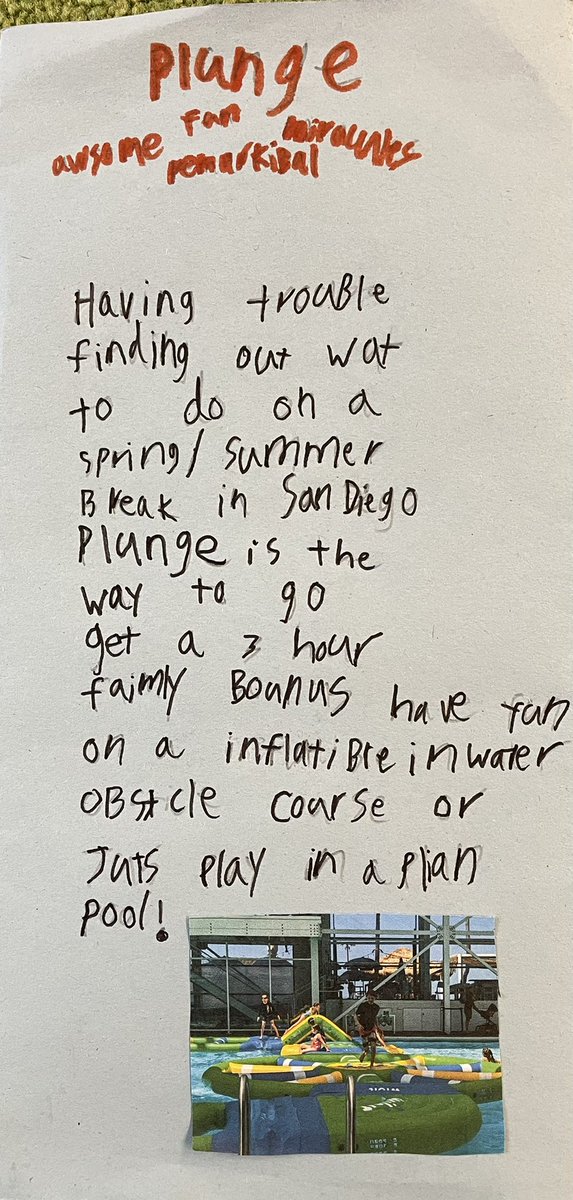 Plunge
awsome fun miracules
remarkibal
Having trouble
finding out wat
to do on a
spring/summer
Break in San Diego
Plunge is the
way to go
get a 3 hour
faimly Bounus have fun
on a inflatible in water
OBstcle course or
Juts play in a plian
pool!
WIBIT